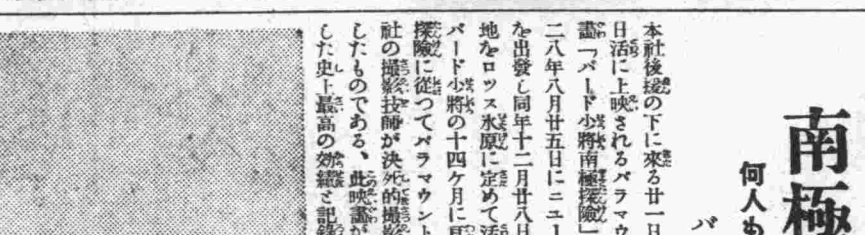 南極
何人も
バ
本社後援の下に來る廿一日
日活に上映されるパラマウ
畫「バード少將南極探險」
二八年八月廿五日にニユー
を出發し同年十二月廿八日
地をロツス氷原に定めて活
バード少將の十四ケ月に亘
探險に從つてパラマウント
社の撮影技師が決死的撮影
したものである、此映畫が
した史上最高の効績と記錄